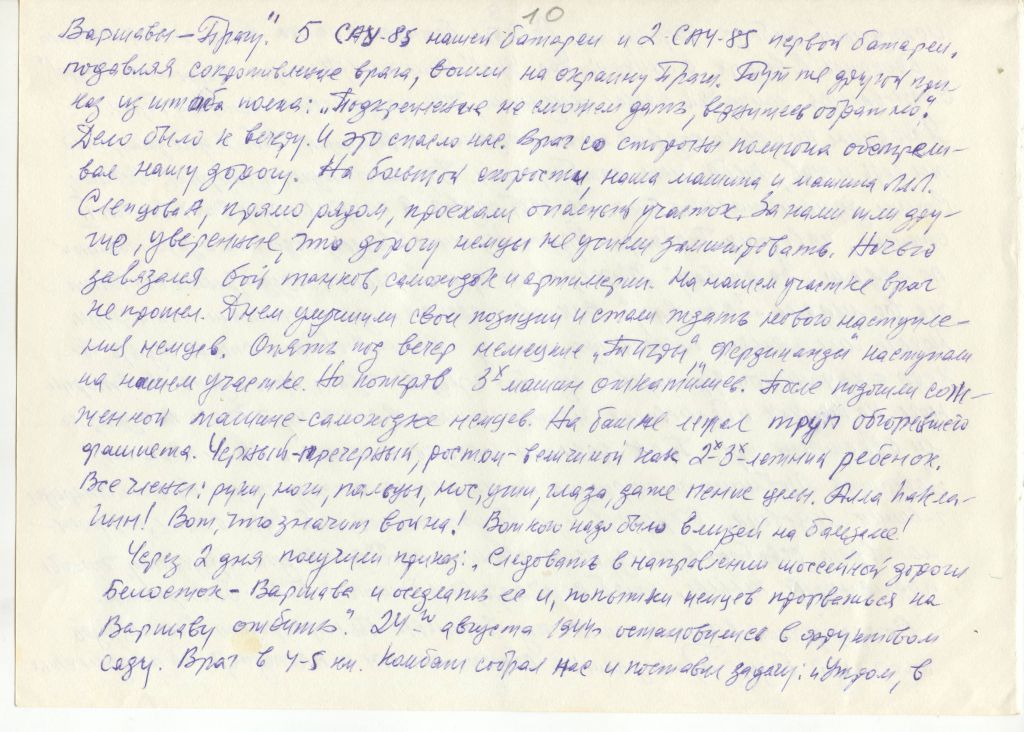 10
Варшавы – Прагу." 5 САУ-85 нашей батареи и 2 САУ-85 первой батареи,
подавляя сопротивление врага, вошли на окраину Праги. Тут же другой при-
каз из штаба полка: „Подкрепление не сможем дать, вернитесь обратно".
Дело было к вечеру. И это спасло нас. Враг со стороны полигона обстрели-
вал нашу дорогу. На большой скорости, наша машина и машина
Слепцова А, прямо рядом, проехали опасный участок. За нами шли дру-
гие, уверенные, что дорогу немцы не успели заминировать. Ночью
завязался бой танков, самоходок и артиллерии. На нашем участке враг
не прошел. Днем улучшили свои позиции и стали ждать нового наступле-
ния немцев. Опять под вечер немецкие „Тигры", „Фердинанды" наступали
на нашем участке. Но потеряв 3х машин откатились. После подошли сож-
женной машине-самоходке немцев. На башне лежал труп обгоревшего
фашиста. Черный-пречерный, ростом-величиной как 2х-3х-летний ребенок.
Все члены: руки, ноги, пальцы, нос, уши, глаза, даже пенис целы. Алла сакла-
гын! Вот, что значит война! Вот кого надо было в музей на
Через 2 дня получили приказ: „Следовать в направлении шоссейной дороги
Белосток – Варшава и оседлать ее и, попытки немцев прорваться на
Варшаву отбить". 24-го августа 1944г остановились в фруктовом
саду. Враг в 4-5 км. Комбат собрал нас и поставил задачу: „Утром, в